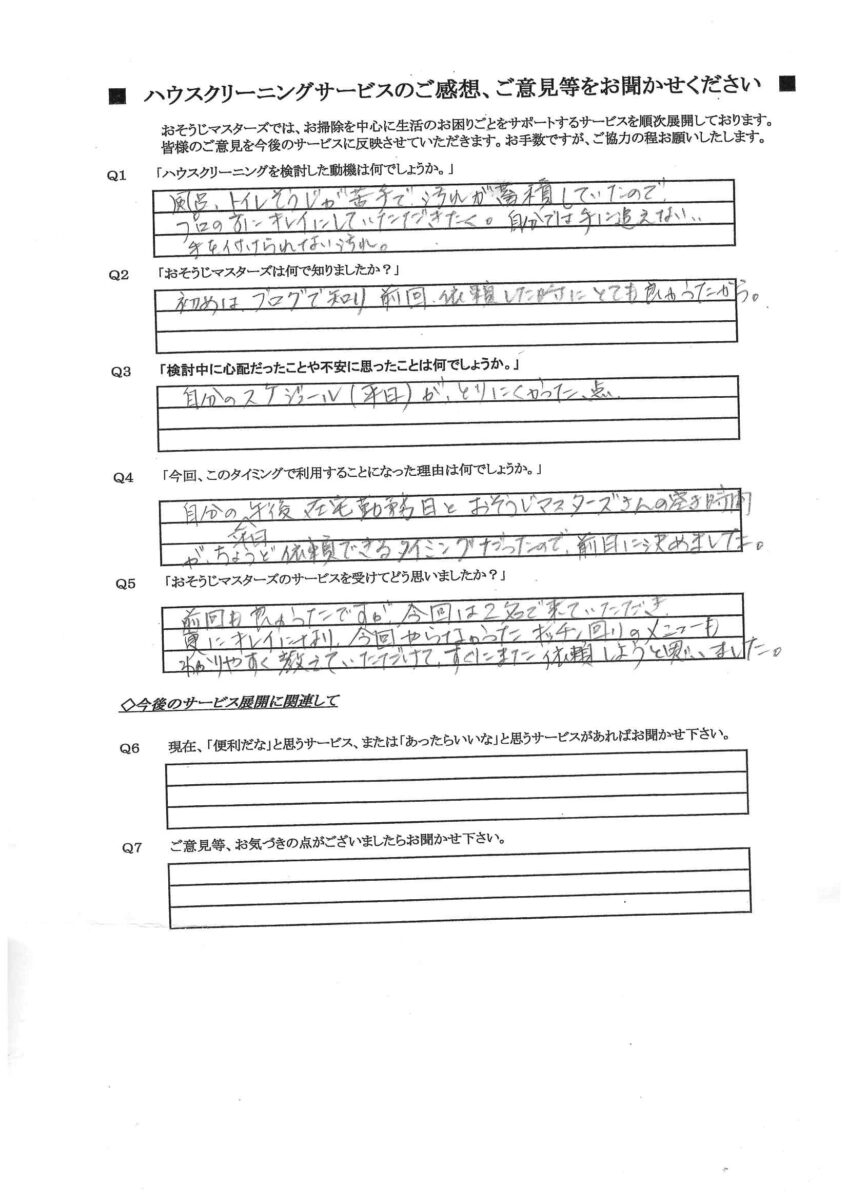 ■ ハウスクリーニングサービスのご感想、ご意見等をお聞かせください ■
おそうじマスターズでは、お掃除を中心に生活のお困りごとをサポートするサービスを順次展開しております。
皆様のご意見を今後のサービスに反映させていただきます。お手数ですが、ご協力の程お願いいたします。
Q1 「ハウスクリーニングを検討した動機は何でしょうか。」
風呂、トイレそうじが苦手で汚れが蓄積していたので
プロの方にキレイにしていただきたく。自分では手に追えない、
手を付けられない汚れ。
Q2 「おそうじマスターズは何で知りましたか？」
初めは、ブログで知り前回、依頼した時にとても良かったから。
Q3 「検討中に心配だったことや不安に思ったことは何でしょうか。」
自分のスケジュール(平日)が、とりにくかった、点
Q4 「今回、このタイミングで利用することになった理由は何でしょうか。」
自分の午後在宅勤務日とおそうじマスターズさんの空き時間
平日
が、ちょうど依頼できるタイミングだったので、前日に決めました。
Q5 「おそうじマスターズのサービスを受けてどう思いましたか？」
前回も良かったですが、今回は2名で来ていただき
更にキレイになり、今回やらなかったキッチン回りのメニューも
わかりやすく教えていただけて、すぐにまた依頼しようと思いました。
◇今後のサービス展開に関連して
Q6 現在、「便利だな」と思うサービス、または「あったらいいな」と思うサービスがあればお聞かせ下さい。
Q7 ご意見等、お気づきの点がございましたらお聞かせ下さい。